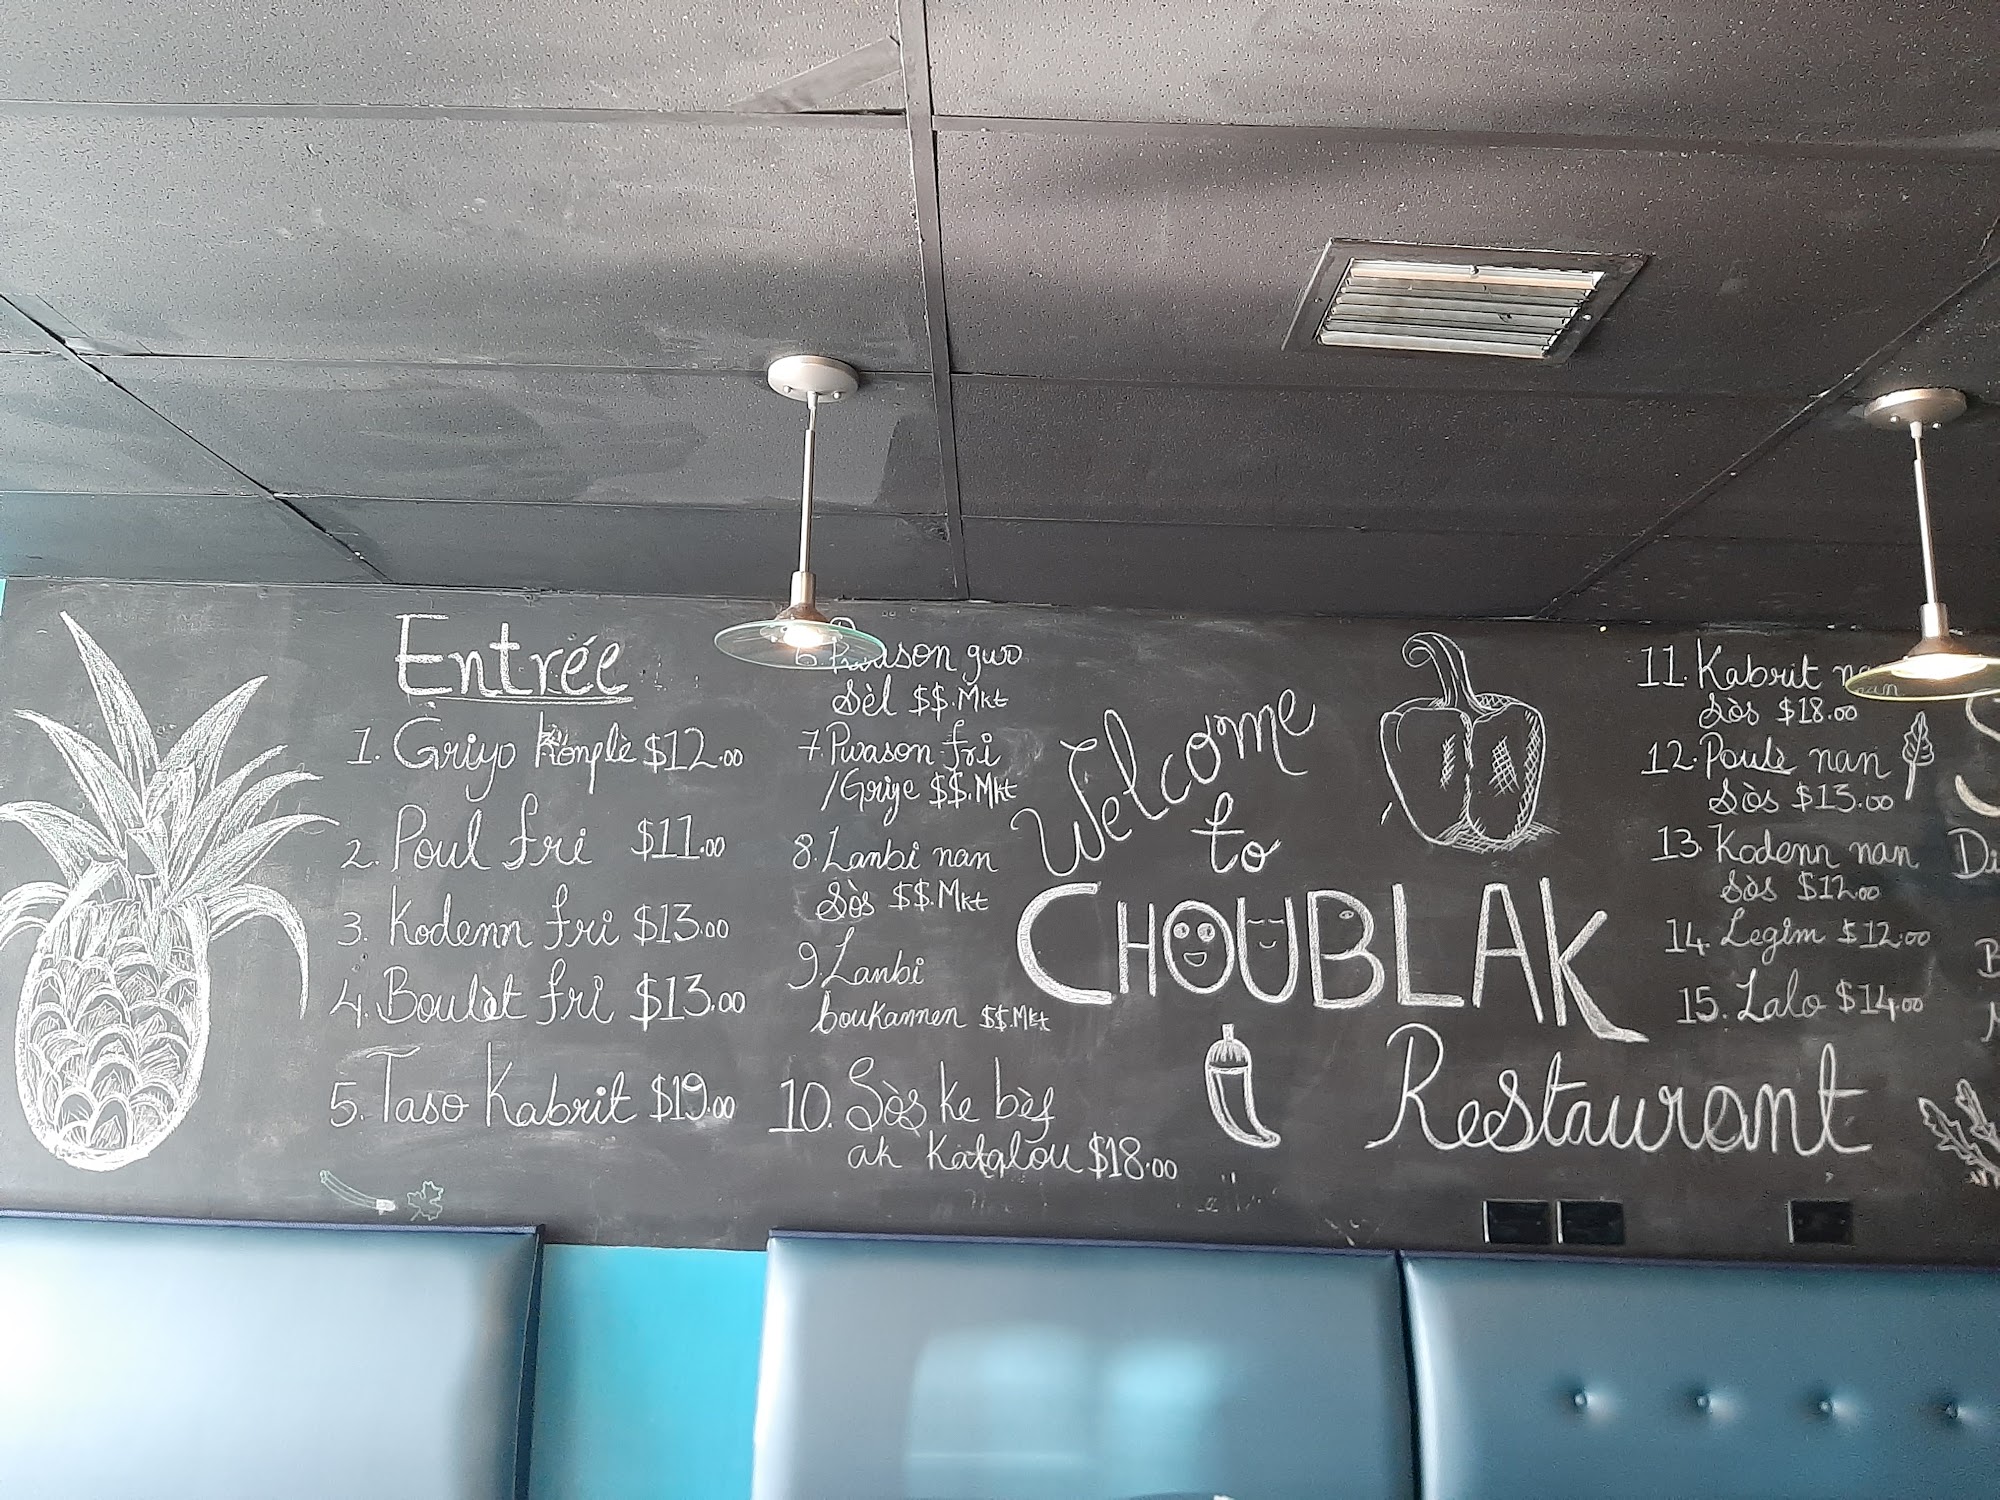 Entrée
1. Griyo Konplè $12.00
2. Poul fri $11.00
3. Kodenn fri $13.00
4. Boulèt fri $13.00
5. Taso Kabrit $19.00
6. Pwason gwo
Sèl $$.Mkt
7. Pwason fri
/Griye $$.Mkt
8. Lanbi nan
Sòs $$.Mkt
9. Lanbi
boukannen $$.Mkt
10. Sòs ke bèf
ak Katalou $18.00
Welcome
to
CHOUBLAK
Restaurant
11. Kabrit nan
Sòs $18.00
12. Poulè nan
Sòs $13.00
13. Kodenn nan
Sòs $12.00
14. Legim $12.00
15. Lalo $14.00